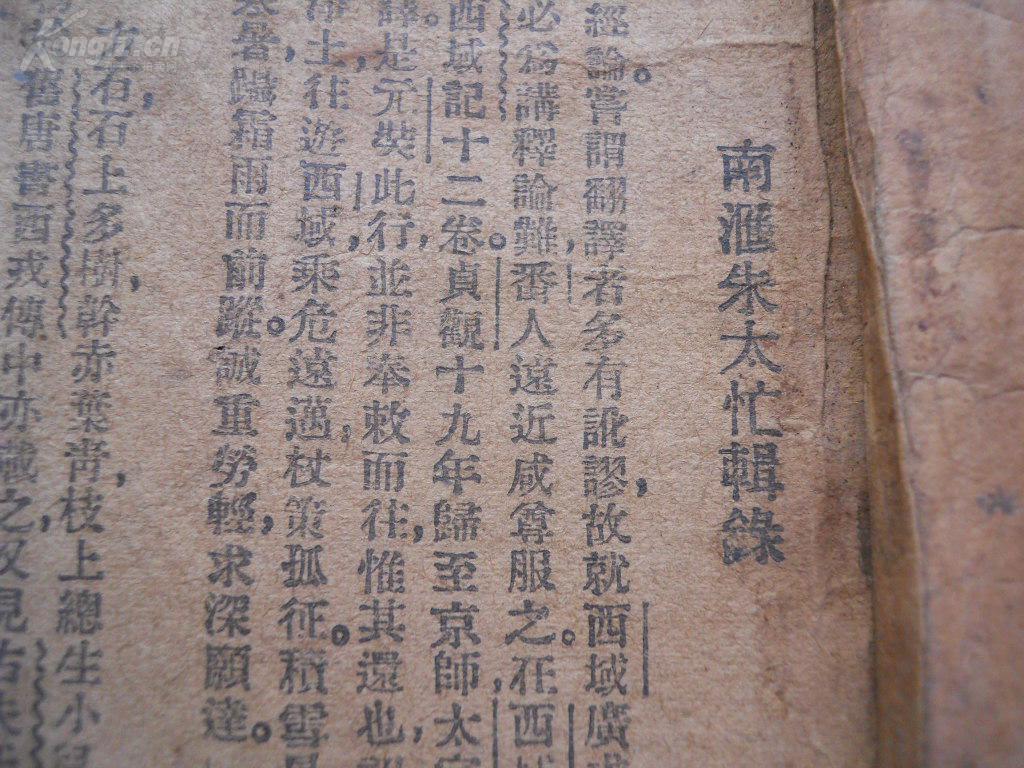 南滙朱太忙輯錄
經論。嘗謂翻譯者多有訛謬,故就西域廣求
必爲講釋論難,番人遠近咸尊服之。在西域
西域記十二卷。貞觀十九年歸至京師,太宗
諱。是元奘此行,並非奉敕而往,惟其還也,
冷土,往遊西域,乘危遠邁,杖策孤征。積雪
寒暑,躡霜雨而前蹤。誠重勞輕,求深願達。
方石,石上多樹,幹赤葉靑,枝上總生小兒
舊唐書西戎傳中亦載之,又見
Kongfz.cn